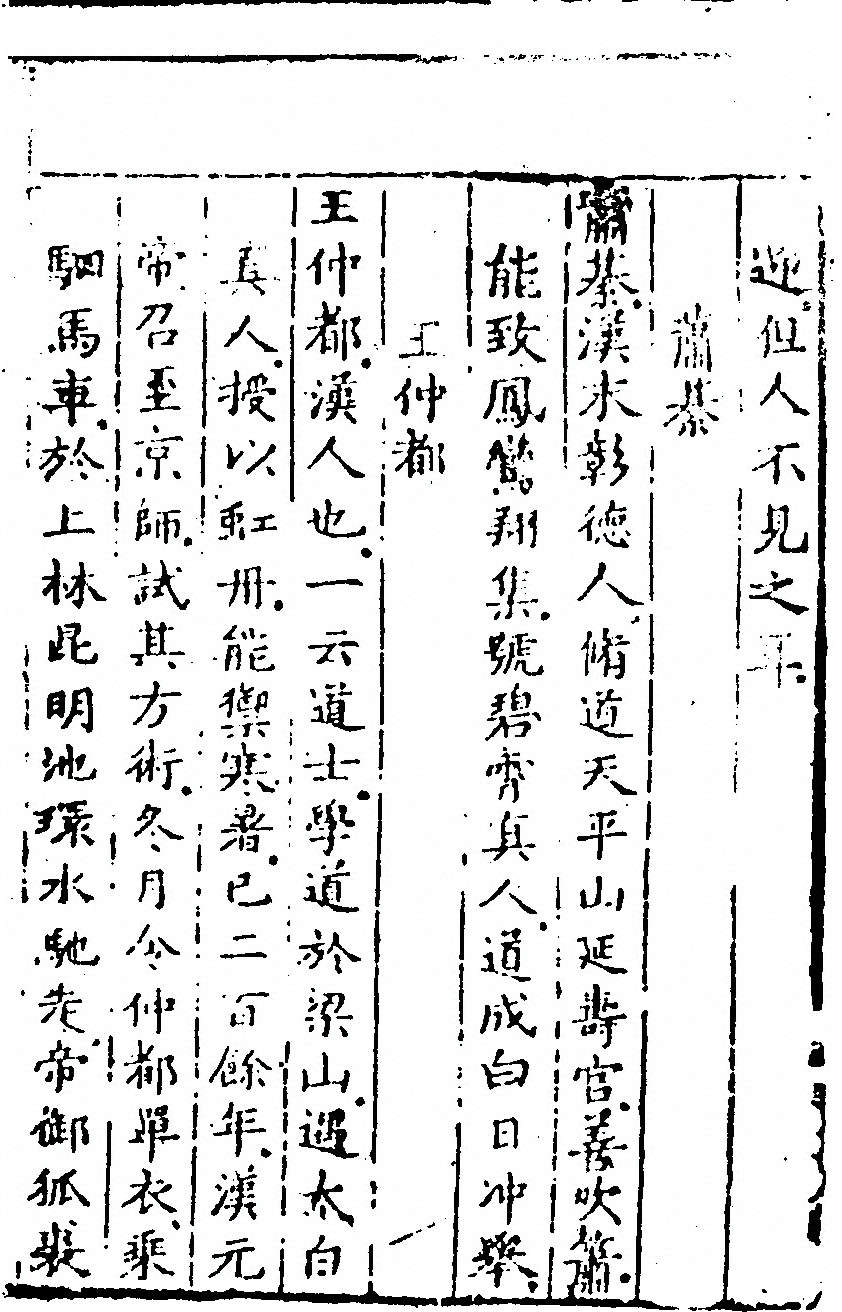 迎但人不見之耳
蕭綦
蕭綦漢水彰德人脩道天平山延壽宫善吹簫
能致鳳鸞翔集號碧霄真人道成白日冲舉
王仲都
王仲都漢人也一云道士學道於梁山遇太白
真人授以虹丹能禦寒暑已二百餘年漢元
帝召至京師試其方術冬月令仲都單衣乘
駟馬車於上林昆明池環水馳走帝御狐裘